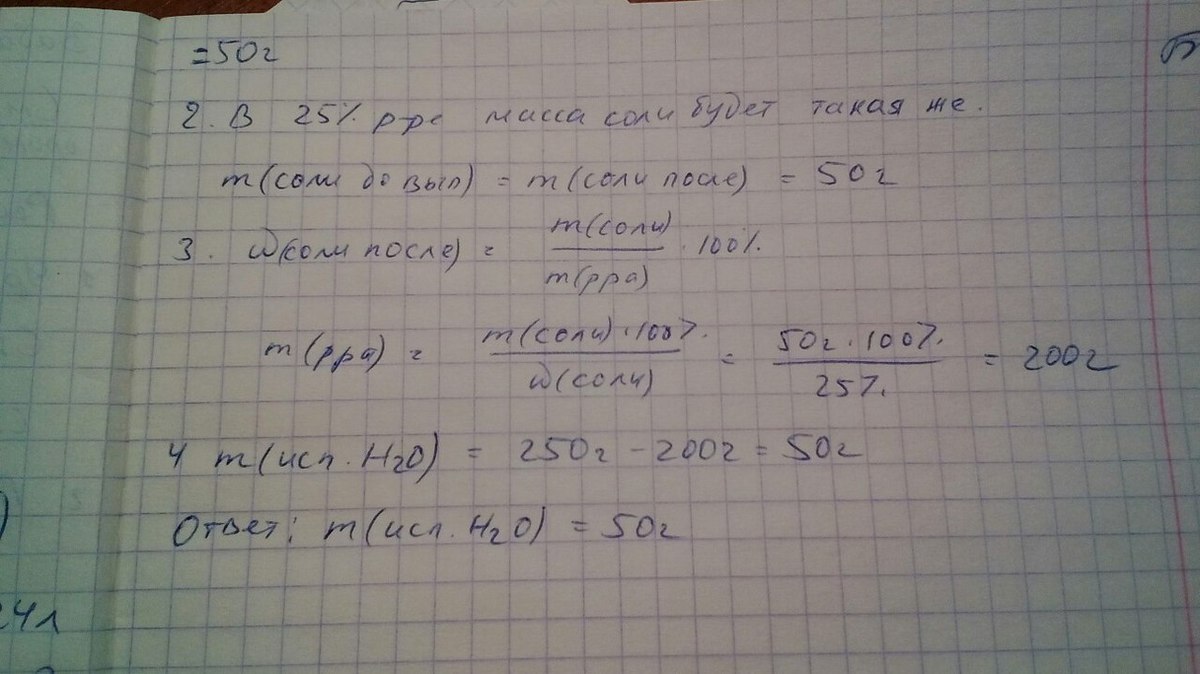 =50г
2. В 25% р-ре масса соли будет такая же.
m(соли до вып) = m(соли после) = 50г
3. ω(соли после) = m(соли) / m(рра) · 100%.
m(рра) = m(соли)·100% / ω(соли) = 50г·100% / 25% = 200г
4 m(исп. H2O) = 250г - 200г = 50г
Ответ: m(исп. H2O) = 50г
24л